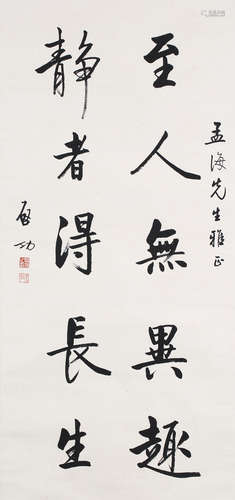 孟海先生雅正
至人無異趣
静者得長生
启功